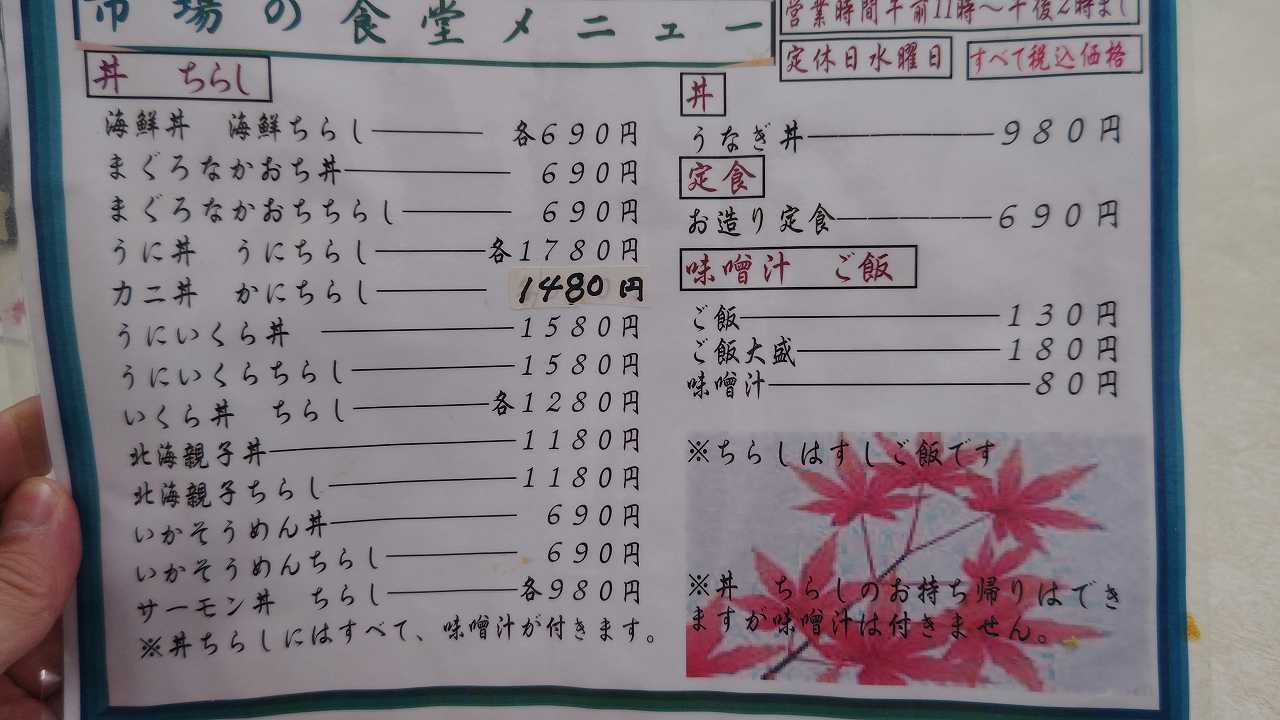 市場の食堂メニュー
営業時間午前11時～午後2時まで
定休日水曜日
すべて税込価格
丼 ちらし
海鮮丼 海鮮ちらし 各690円
まぐろなかおち丼 690円
まぐろなかおちちらし 690円
うに丼 うにちらし 各1780円
カニ丼 かにちらし 1480円
うにいくら丼 1580円
うにいくらちらし 1580円
いくら丼 ちらし 各1280円
北海親子丼 1180円
北海親子ちらし 1180円
いかそうめん丼 690円
いかそうめんちらし 690円
サーモン丼 ちらし 各980円
※丼ちらしにはすべて、味噌汁が付きます。
丼
うなぎ丼 980円
定食
お造り定食 690円
味噌汁 ご飯
ご飯 130円
ご飯大盛 180円
味噌汁 80円
※ちらしはすしご飯です
※丼 ちらしのお持ち帰りはでき
ますが味噌汁は付きません。